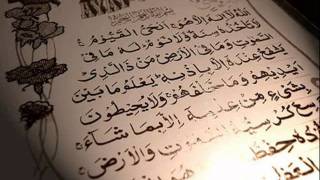 اَللّٰهُ لَا اِلٰهَ اِلَّا هُوَ اَلْحَيُّ الْقَيُّومُ
لَا تَأْخُذُهُ سِنَةٌ وَلَا نَوْمٌ لَهُ مَا فِي
السَّمٰوَاتِ وَمَا فِي الْاَرْضِ مَنْ ذَا الَّذِي
يَشْفَعُ عِنْدَهُ اِلَّا بِاِذْنِهِ يَعْلَمُ مَا بَيْنَ
اَيْدِيهِمْ وَمَا خَلْفَهُمْ وَلَا يُحِيطُونَ
بِشَيْءٍ مِنْ عِلْمِهِ اِلَّا بِمَا شَاءَ
سِعَ كُرْسِيُّهُ السَّمٰوَاتِ وَالْاَرْضَ